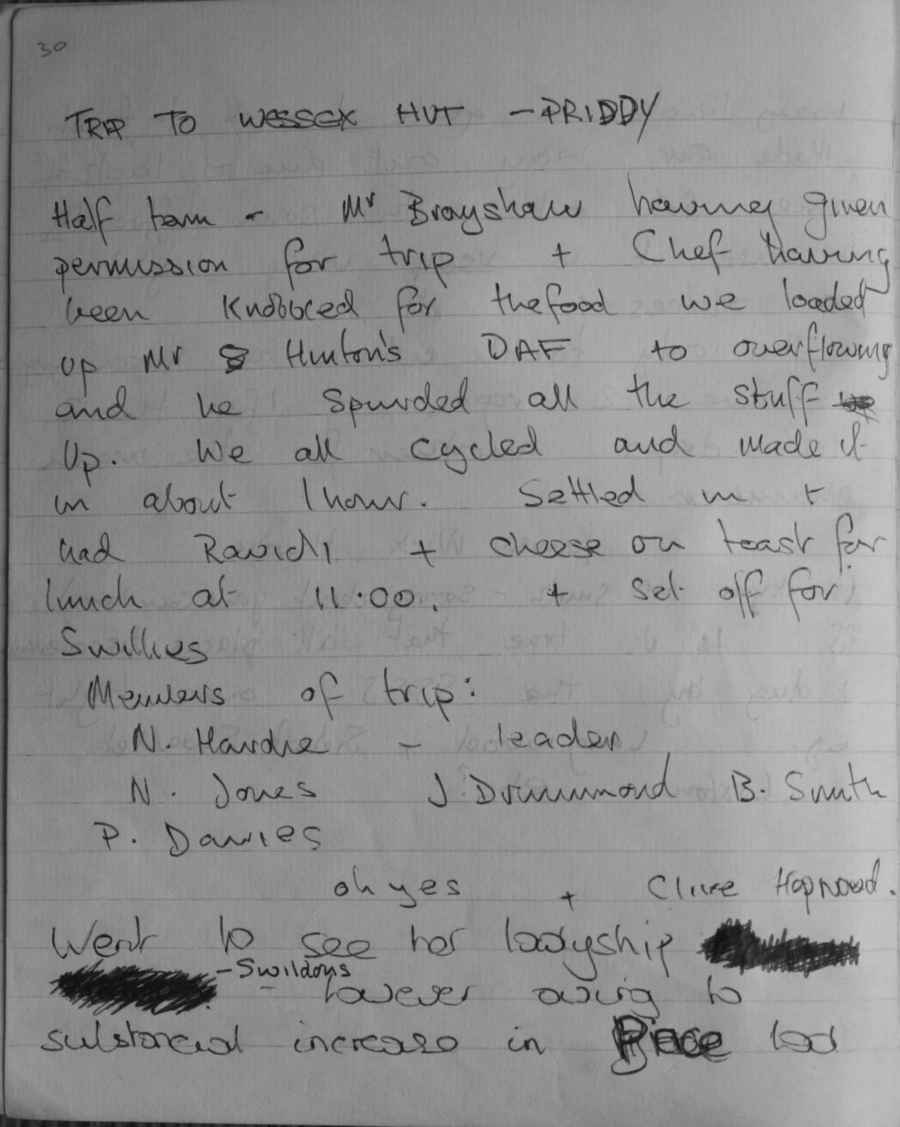 30
TRIP TO WESSEX HUT - PRIDDY
Half term - Mr Brayshaw having given
permission for trip + Chef having
been Knobbled for the food we loaded
up Mr Hinton's DAF to overflowing
and he all the stuff
Up. We all cycled and made it
in about 1 hour. Settled in +
had Ravioli + cheese on toast for
lunch at 11.00. + set off for
Swillies
Members of trip:
N. Hardie - leader
N. Jones J. Drummond B. Smith
P. Davies
oh yes + Clive Hopwood.
Went to see her ladyship
- Swildons
- however owing to
substancial increase in Price lad